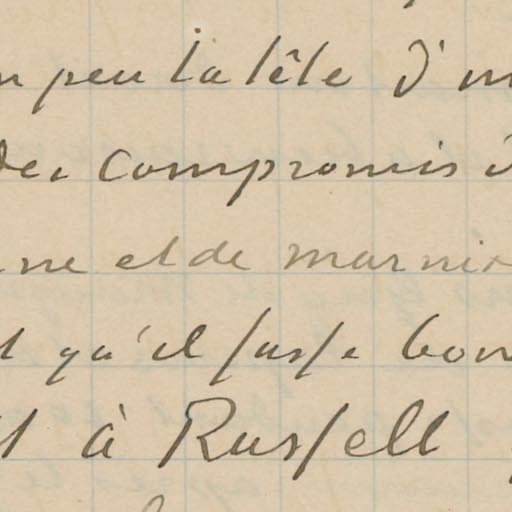 peu la tête d'un
des compromis
ne et de
qu'il fasse bon
à Russell